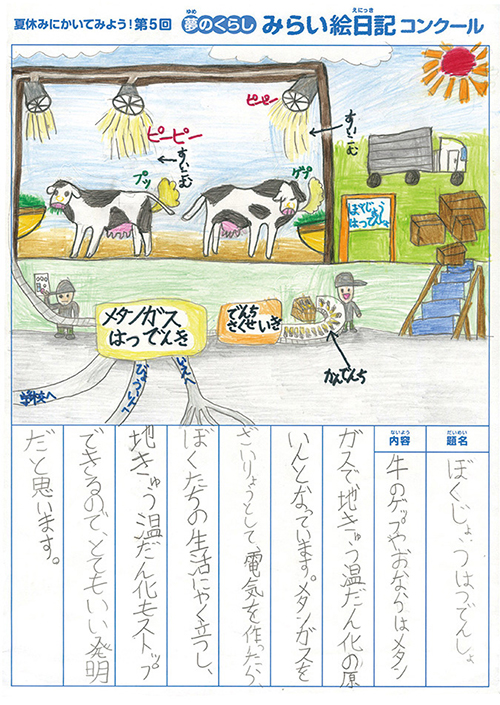 夏休みにかいてみよう！第5回 夢のくらし みらい絵日記コンクール
ゆめ
えにっき
ピーピー
ピーピー
すいこむ
すいこむ
プッ
ゲプ
ぼくじょう
はつでんしょ
メタンガス
はつでんき
でんち
さくせいき
かんでんち
学校へ
びょういんへ
いえへ
だいめい
題名
ぼくじょうはつでんしょ
ないよう
内容
牛のゲップやおならはメタン
ガスで地きゅう温だん化の原
いんとなっています。メタンガスを
ざいりょうとして、電気を作ったら、
ぼくたちの生活にやく立つし、
地きゅう温だん化もストップ
できるので、とてもいい発明
だと思います。